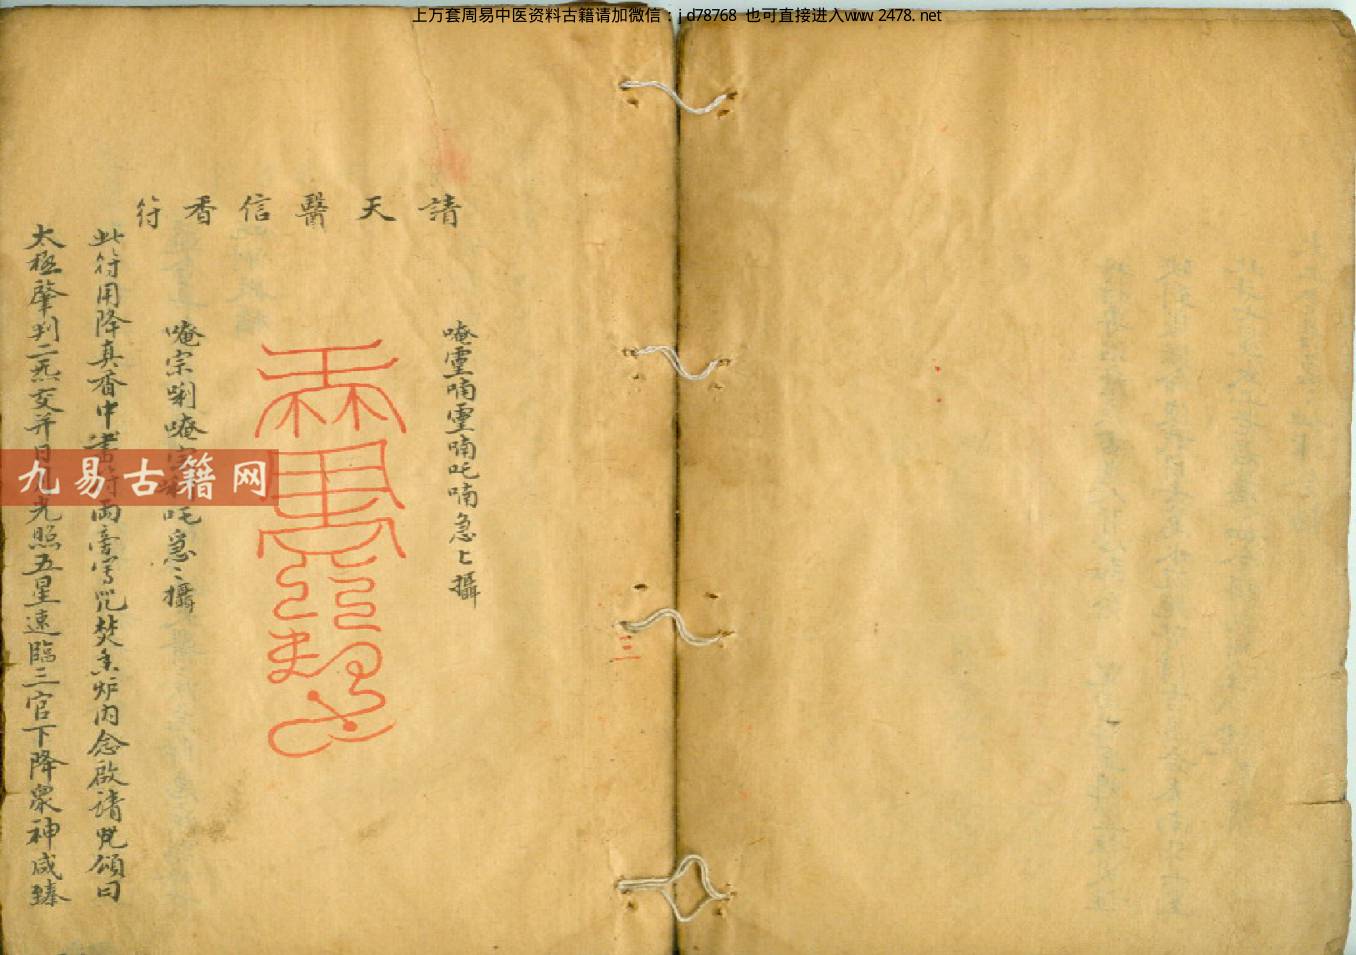 上万套周易中医资料古籍请加微信：jd78768 也可直接进入www.2478.net
請天醫信香符
唵靈喃靈喃吒喃急上攝
唵宗唎唵宗吒急〻攝
此符用降真香中書符兩旁寫咒焚系炉内念啟請咒頌曰
太極肇判二炁交并日光照五星速臨三官下降衆神咸臻
九易古籍网
三